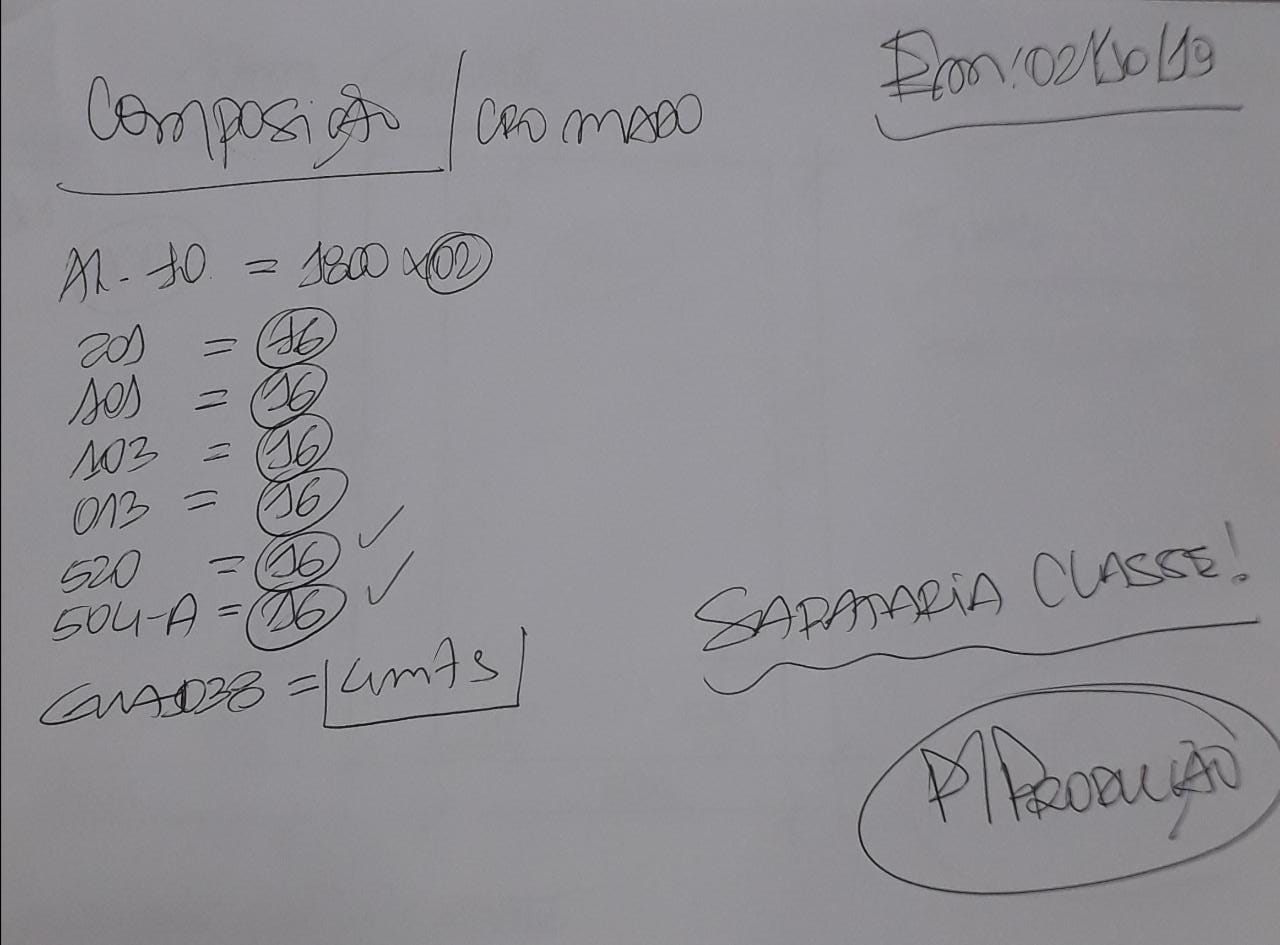 Em: 02/10/19
Composição / CROMADO
AL-10 = 1800 x 02
201 = 16
101 = 16
103 = 16
013 = 16
520 = 16 ✓
504-A = 16 ✓
= 4mts
SAPATARIA CLASSE!
P/ PRODUÇÃO